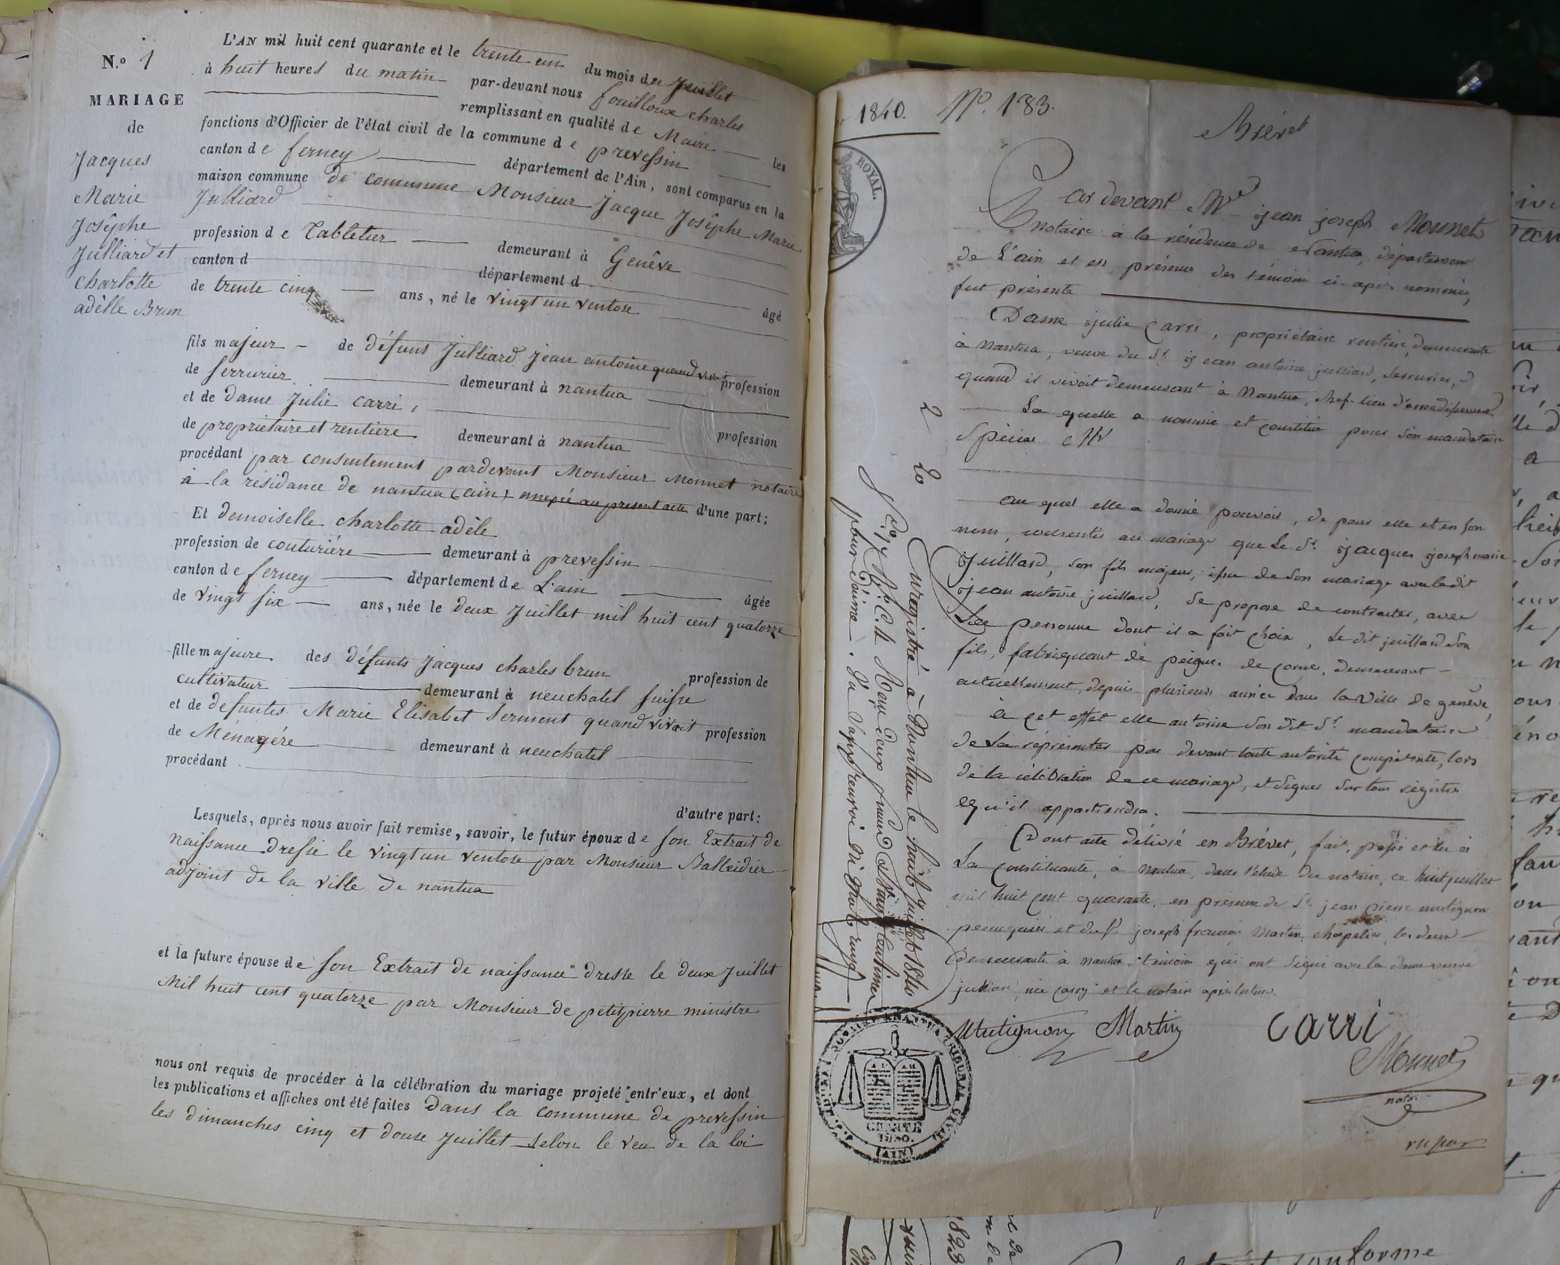 N.o 1
MARIAGE
de
Jacques
Marie
Josêphe
Julliard et
Charlotte
adèlle Brun
L'AN mil huit cent quarante et le trente un du mois de Juillet
à huit heures du matin par-devant nous fouilloux charles
remplissant en qualité de Maire les
fonctions d'Officier de l'état civil de la commune de prevessin
canton de ferney département de l'Ain, sont comparus en la
maison commune de commune Monsieur Jacque Josêphe Marie
Julliard
profession de Tabletier demeurant à Genêve
canton d département d
de trente cinq ans, né le vingt un ventose âgé
fils majeur de défunt Julliard Jean antoine quand vivait profession
de serrurier demeurant à nantua
et de dame Julie carri,
de propriétaire et rentière demeurant à nantua profession
procédant par consentement pardevant Monsieur Monnet notaire
à la résidance de nantua (ain) annexé au present acte d'une part;
Et demoiselle charlotte adèle
profession de couturiére demeurant à prevessin
canton de ferney département de L'ain âgée
de vingt six ans, née le deux Juillet mil huit cent quatorze
fille majeure des défunts Jacques charles brun profession de
cultivateur demeurant à neuchatel suisse
et de defuntes Marie Elisabet Serment quand vivait profession
de Menagére demeurant à neuchatel
procédant
d'autre part:
Lesquels, après nous avoir fait remise, savoir, le futur époux de son Extrait de
naissance dressé le vingt un ventose par Monsieur Balleidier
adjoint de la ville de nantua
et la future épouse de son Extrait de naissance dressé le deux Juillet
mil huit cent quatorze par Monsieur de petitpierre ministre
nous ont requis de procéder à la célébration du mariage projeté entr'eux, et dont
les publications et affiches ont été faites dans la commune de prevessin
les dimanches cinq et douse Juillet selon le veu de la loi
1840. No. 183.
Brévet
ROYAL.
Par devant Me Jean joseph Monnet
notaire à la résidence de Nantua, département
de L'ain et en présence des témoins ci-après nommés,
fut présente
Dame julie Carri, propriétaire rentière, demeurante
à Nantua, veuve du Sr. jean antoine julliard, serrurier,
quand il vivait demeurant à Nantua, chef-lieu d'arrondissement
La quelle a nommé et constitué pour son mandataire
Spécial Mr
au quel elle a donné pouvoir, de pour elle et en son
nom, consentir au mariage que le Sr. jacques joseph marie
Juillard, son fils majeur, issu de son mariage avec le dit
jean antoine juillard, se propose de contracter, avec
la personne dont il a fait choix, le dit juillard son
fils, fabriquant de peignes de corne, demeurant
actuellement, depuis plusieurs années dans la ville de genève,
a cet effet elle autorise son dit Sr. mandataire
de la représenter par devant toute autorité compétente, lors
de la célébration de ce mariage, et signer sur tous registres
qu'il appartiendra.
Dont acte délivré en Brévet, fait, passé et lu à
la constituante, à Nantua, dans l'étude du notaire, ce huit juillet
mil huit cent quarante, en présence de Sr. jean pierre mutignon
perruquier et de Sr. joseph françois Martin, chapelier, les deux
demeurants à nantua, témoins qui ont signé avec la dame veuve
julliard, née carry et le notaire après lecture.
Mutignon Martin Carri
Monnet
notre
Enregistré à Nantua le huit juillet 1840
pour dixme
CHARTE
1830.
(AIN)
conforme
1823